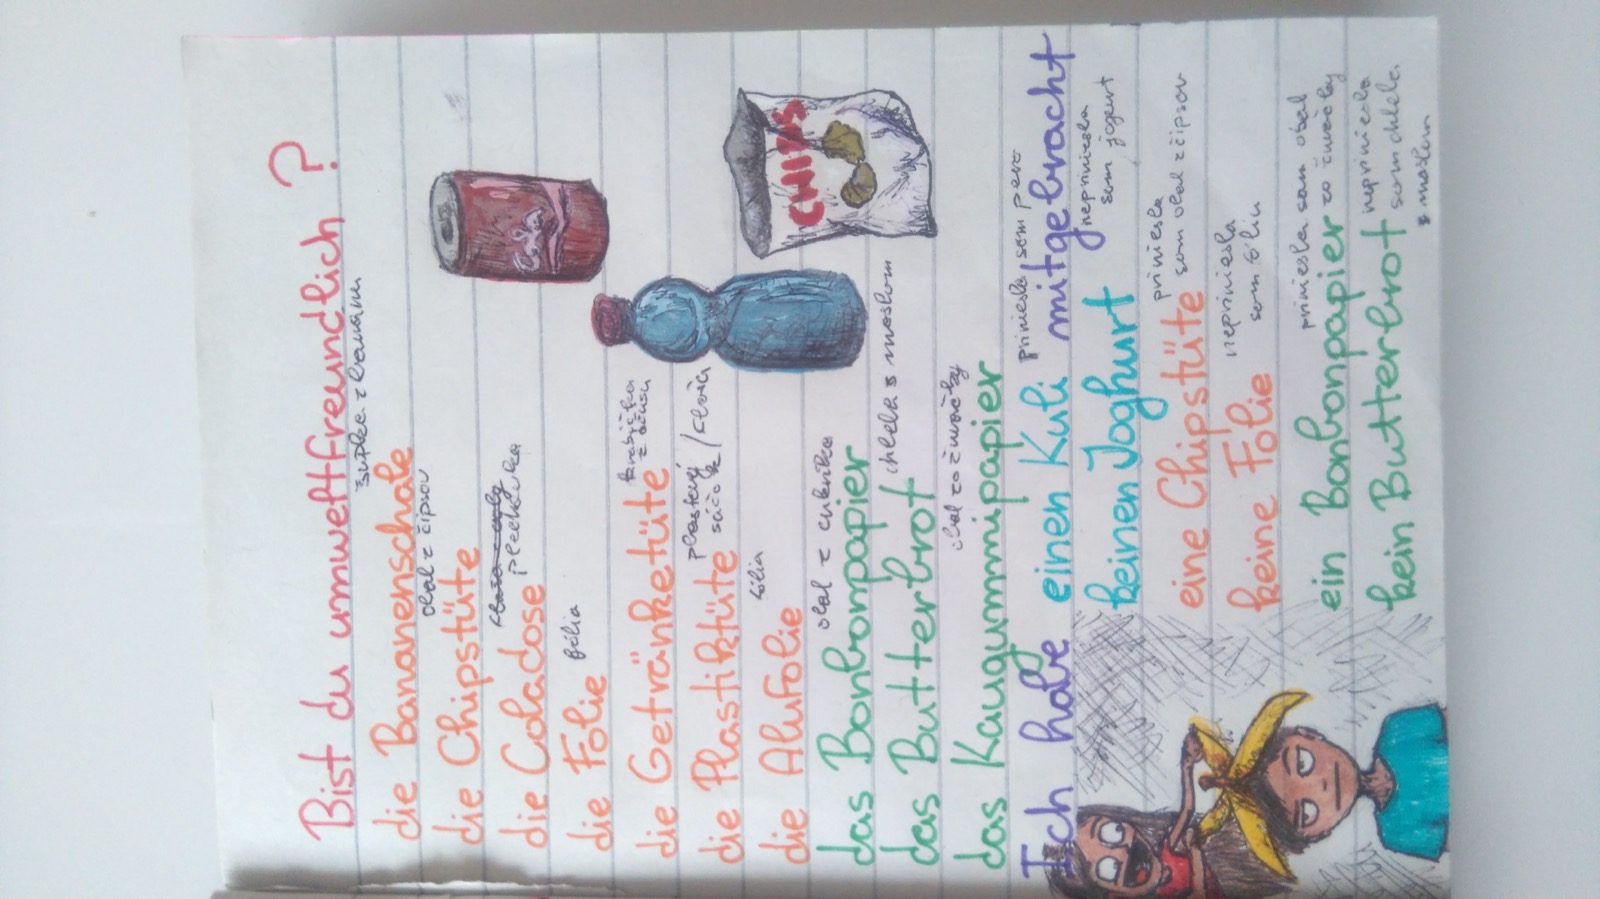 Bist du umweltfreundlich ?
šupka z banánu
die Bananenschale
obal z čipsov
die Chipstüte
plechovka
die Coladose
fólia
die Folie
krabička z džúsu
die Getränketüte
plastový sáčok /
die Plastiktüte
fólia
die Alufolie
obal z cukríka
das Bonbonpapier
chleba s maslom
das Butterbrot
obal zo žuvačky
das Kaugummipapier
priniesla som pero
Ich habe einen Kuli mitgebracht
nepriniesla som jogurt
keinen Joghurt
priniesla som obal z čipsov
eine Chipstüte
nepriniesla som fóliu
keine Folie
priniesla som obal zo žuvačky
ein Bonbonpapier
nepriniesla som chleba s maslom
kein Butterbrot
CHIPS